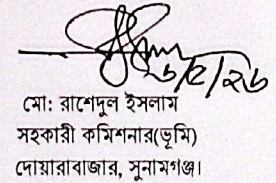 ৬/২/২৬
মো: রাশেদুল ইসলাম
সহকারী কমিশনার(ভূমি)
দোয়ারাবাজার, সুনামগঞ্জ।